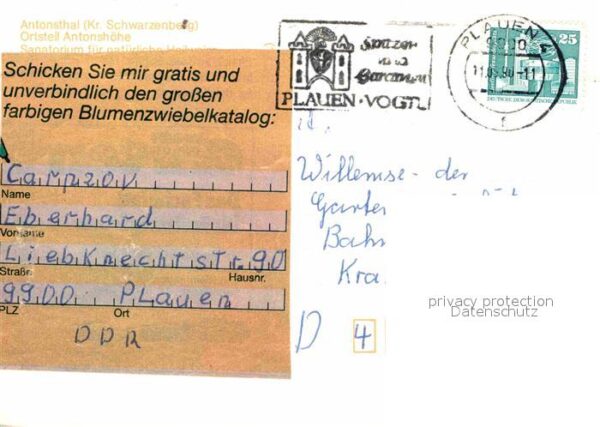 Antonsthal (Kr. Schwarzenberg)
Ortsteil Antonshöhe
Sanatorium für natürliche Heilweise
Schicken Sie mir gratis und
unverbindlich den großen
farbigen Blumenzwiebelkatalog:
Carpzov
Name
Eberhard
Vorname
Liebknechtstr. 90
Straße Hausnr.
9900 Plauen
PLZ Ort
DDR
Spitzen
und
Gardinen
PLAUEN · VOGTL
PLAUEN 1
9900
11.05.90-11
f
25
DEUTSCHE DEMOKRATISCHE REPUBLIK
Willemse - der
Garten
Bahn
Kra
D 4
privacy protection
Datenschutz